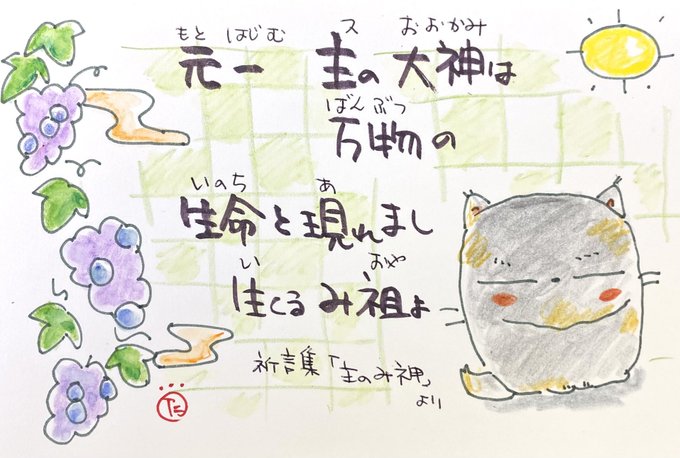 もと はじむ ス おおかみ
元一 主の大神は
ばんぶつ
万物の
いのち あ
生命と現れまし
い おや
生くるみ祖よ
祈言集「主のみ神」
より